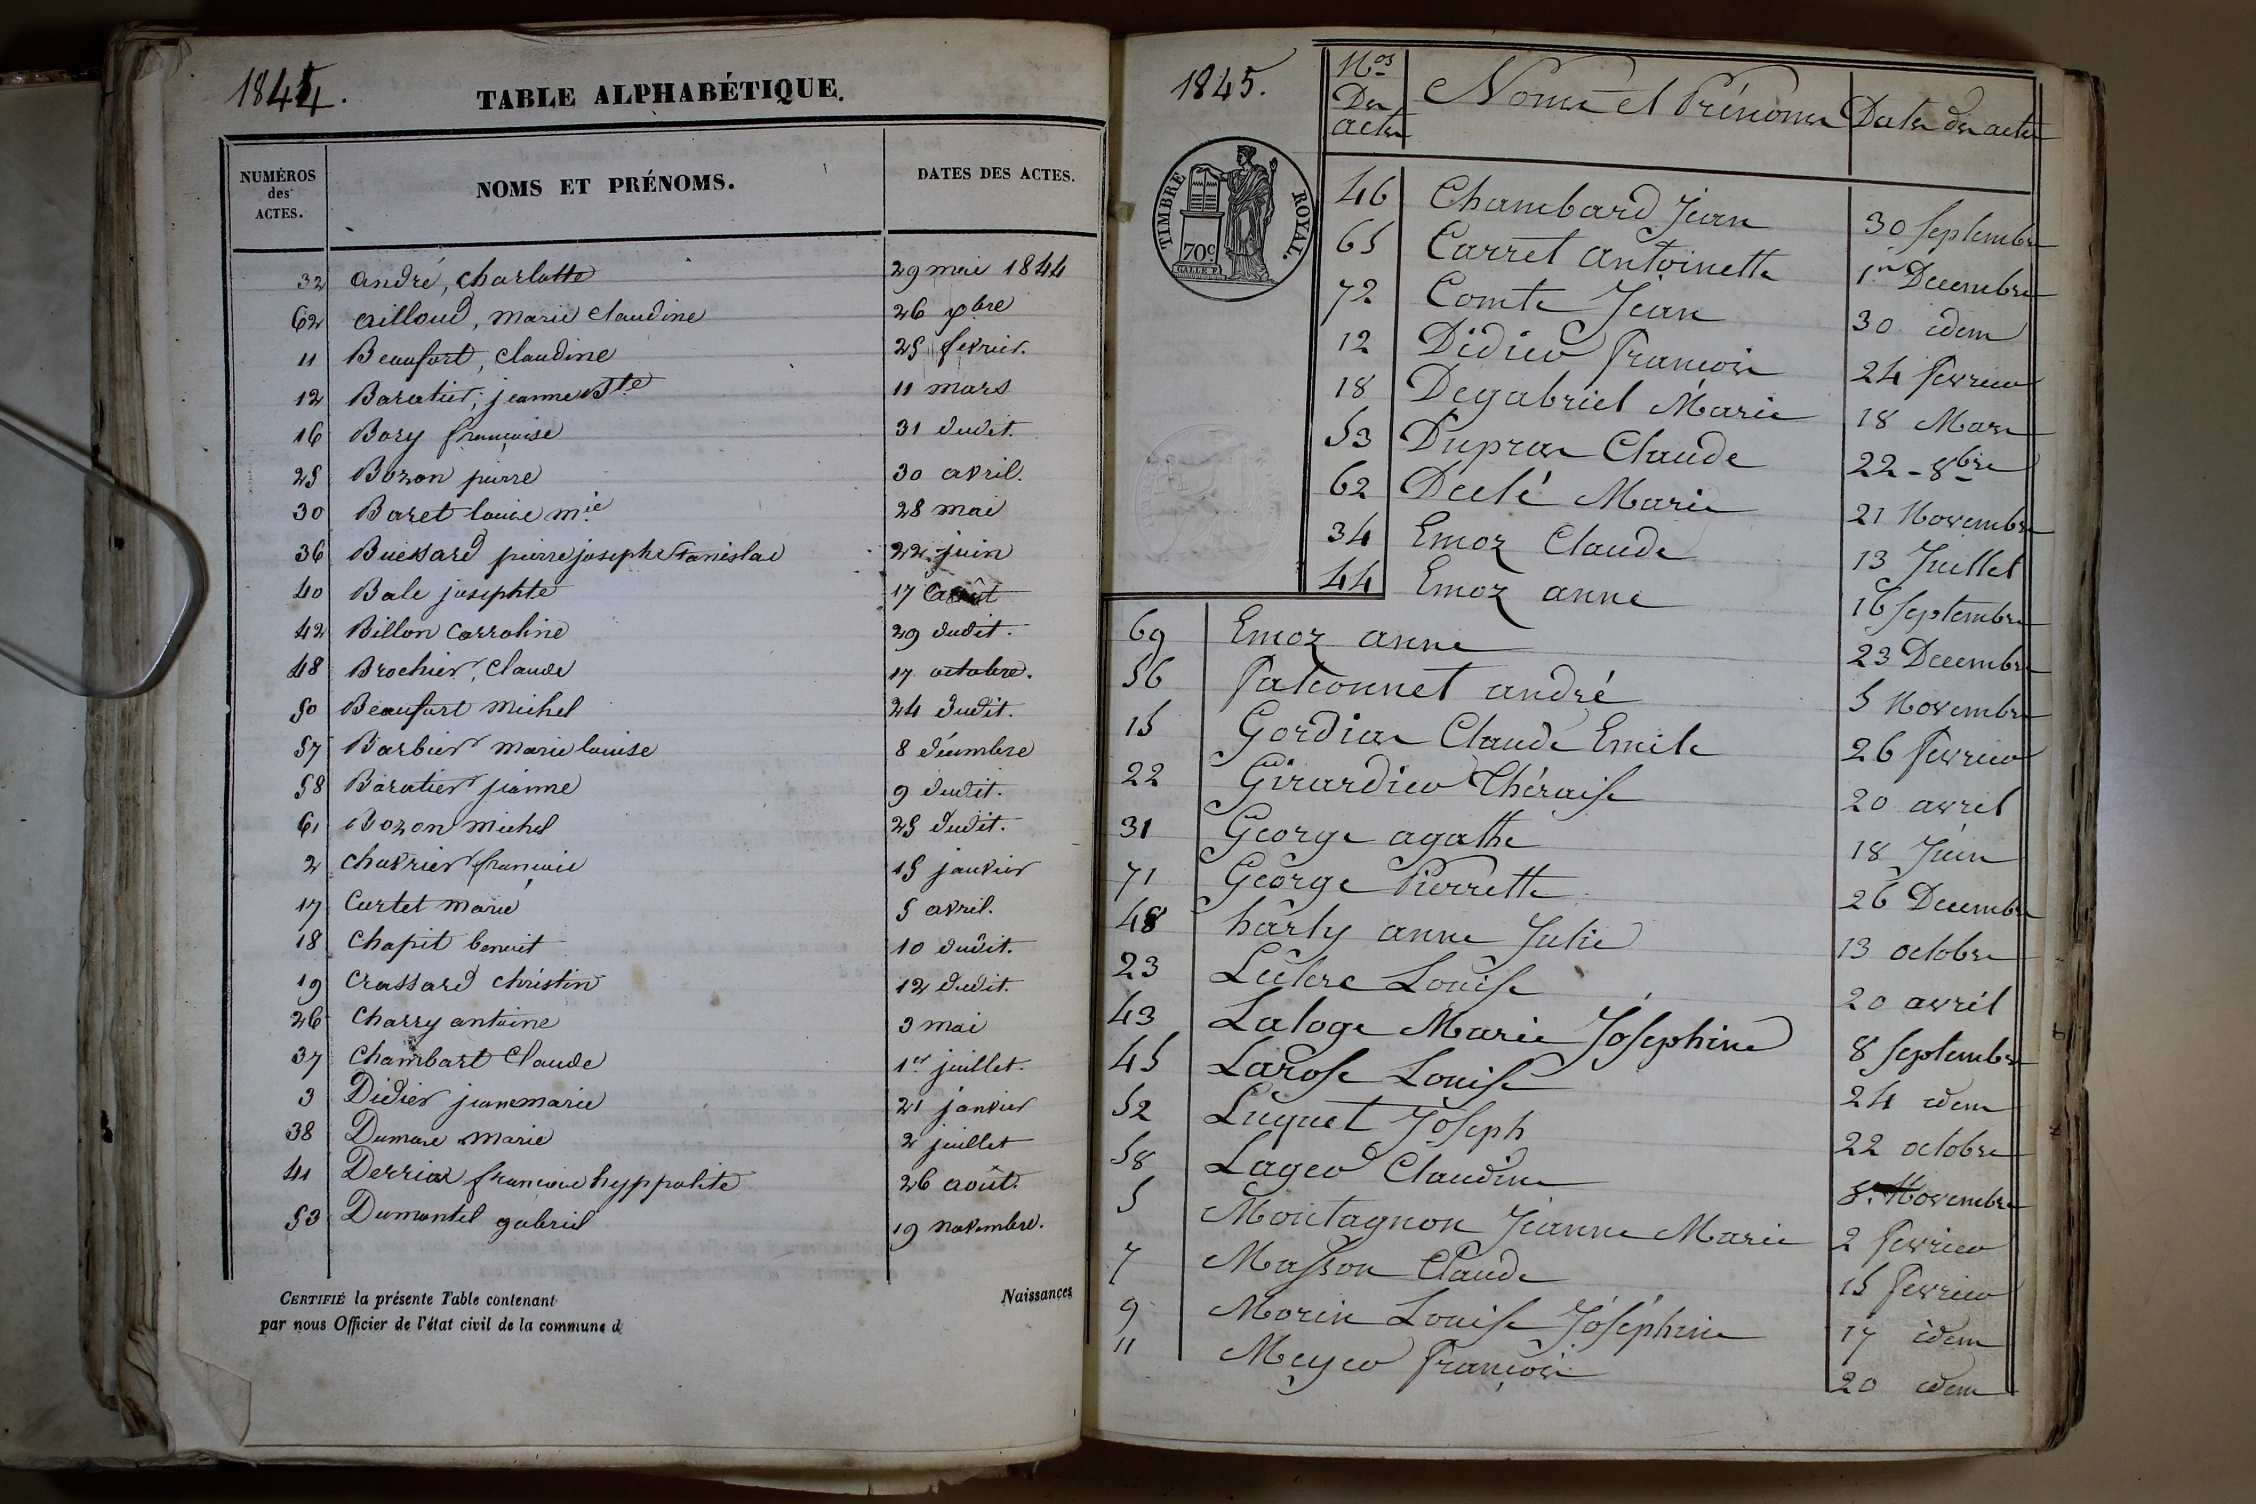 1844.
TABLE ALPHABÉTIQUE.
NUMÉROS des ACTES.
NOMS ET PRÉNOMS.
DATES DES ACTES.
32 andré, charlotte 29 mai 1844
62 ailloud, marie claudine 26 xbre
11 Beaufort, Claudine 25 fevrier.
12 Baratier, jeanne Bte 11 mars
16 Bory françoise 31 dudit.
25 Bozon pierre 30 avril.
30 Baret louise mie 28 mai
36 Buessard pierre joseph Stanislas 22 juin
40 Bale josephte 17 août
42 Billon Carroline 29 dudit.
48 Brochier, Claude 17 octobre.
50 Beaufort michel 24 dudit.
57 Barbier marie louise 8 décembre
58 Baratier jeanne 9 dudit.
61 Bozon michel 25 dudit.
2 chavrier françois 15 janvier
17 Curtet marie 5 avril.
18 Chapit benoit 10 dudit.
19 Crassard christin 12 dudit.
26 Charry antoine 3 mai
37 Chambart Claude 1er juillet.
3 Didier jeanmarie 21 janvier
38 Dumas marie 2 juillet
41 Derrias françois hyppolite 26 août.
53 Dumontel gabriel 19 novembre.
CERTIFIÉ la présente Table contenant Naissances
par nous Officier de l'état civil de la commune d
1845.
Nos Des actes
Noms et Prénoms
Dates des actes
TIMBRE ROYAL.
70c
46 Chambard Jean 30 Septembre
65 Carret antoinette 1er Decembre
72 Comte Jean 30 idem
12 Didier François 24 Fevrier
18 Degabriel Marie 18 Mars
53 Dupras Claude 22 - 8bre
62 Declé Marie 21 Novembre
34 Emoz Claude 13 Juillet
44 Emoz anne 16 Septembre
69 Emoz anne 23 Decembre
56 Falconnet andré 5 Novembre
15 Gordias Claude Emile 26 Fevrier
22 Girardier Théraise 20 avril
31 George agathe 18 Juin
71 George Pierrette 26 Decembre
48 harly anne Julie 13 octobre
23 Leclere Louise 20 avril
43 Laloge Marie Josephine 8 Septembre
45 Larose Louise 24 idem
52 Luquet Joseph 22 octobre
58 Lager Claudine 8 Novembre
5 Montagnon Jeanne Marie 2 Fevrier
7 Masson Claude 15 Fevrier
9 Morin Louise Joséphine 17 idem
11 Meyer François 20 idem